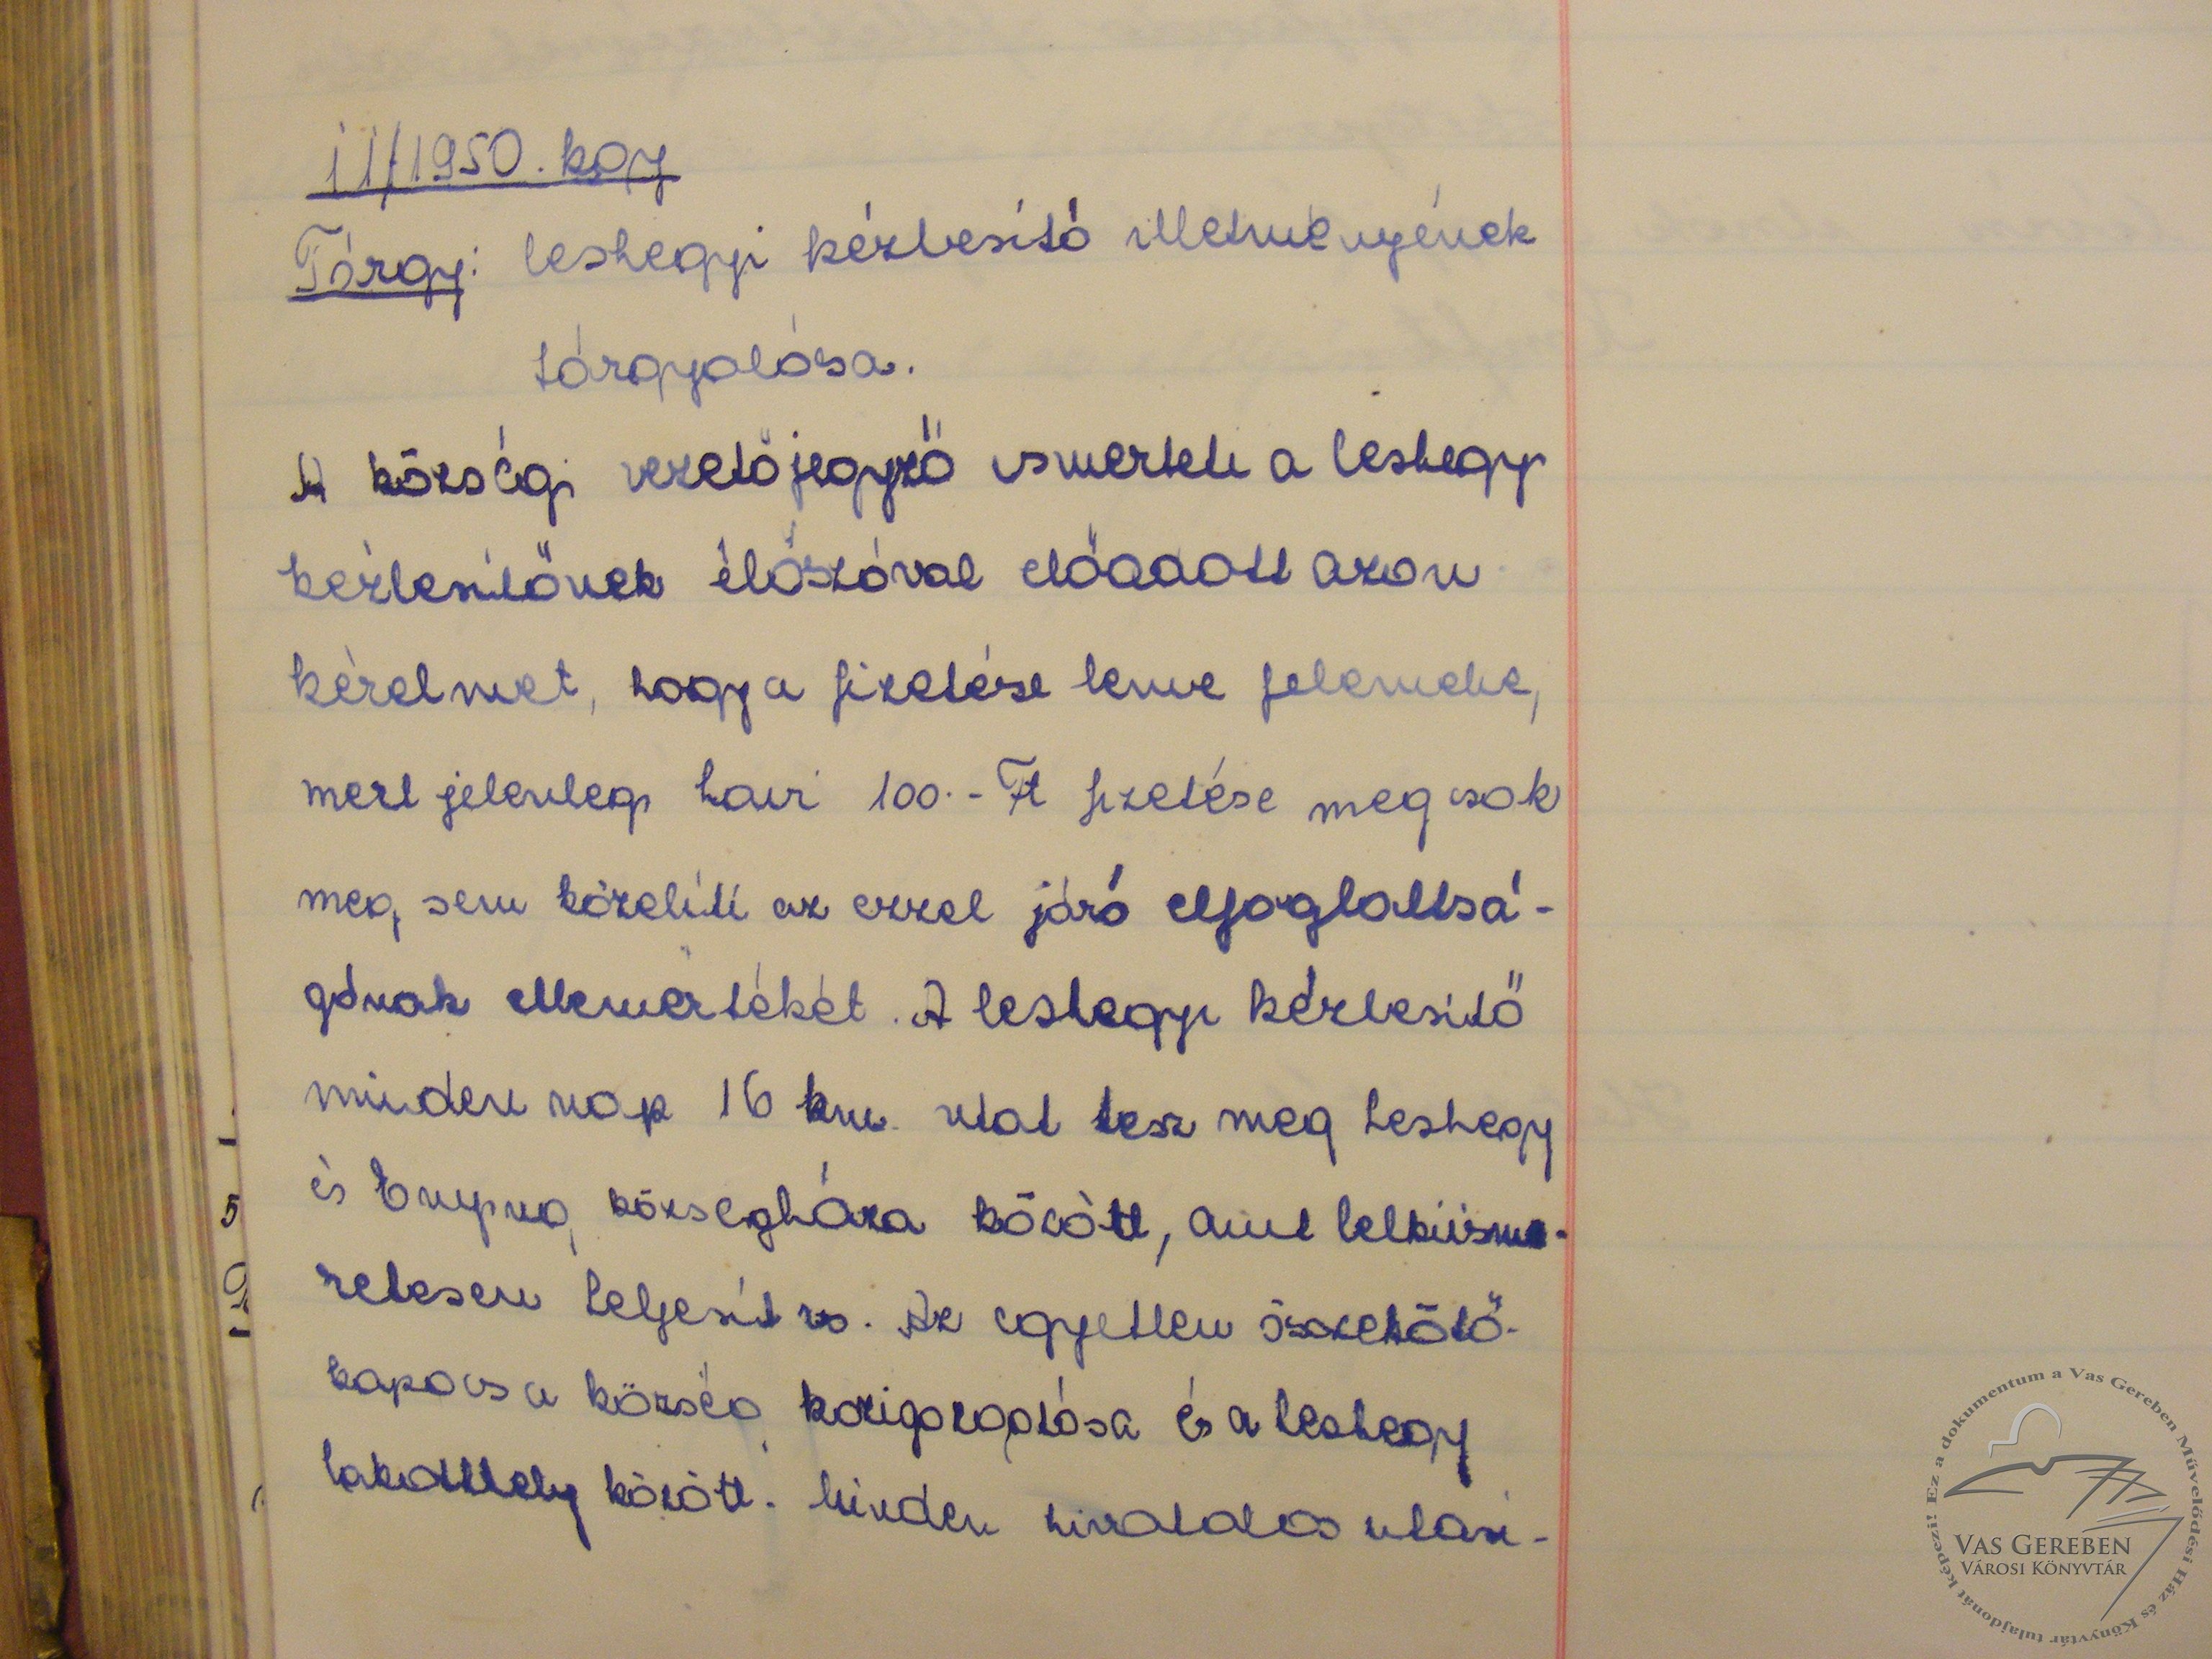 11/1950. kgy
Tárgy: leshegyi kézbesítő illetményének
tárgyalása.
A községi vezetőjegyző ismerteti a leshegyi
kézbesítőnek élőszóval előadott azon
kérelmet, hogy a fizetése lenne felemelve,
mert jelenlegi havi 100.- Ft fizetése meg csak
meg sem közelíti az ezzel járó elfoglaltsá-
gának ellenértékét. A leshegyi kézbesítő
minden nap 16 km. utat tesz meg Leshegy
és községháza között, amit lelkiisme-
retesen teljesít is. Az egyetlen összekötő-
kapocs a község közigazgatása és a leshegy
lakotthely között. Minden hivatalos utasí-
Ez a dokumentum a Vas Gereben Művelődési Ház és Könyvtár tulajdonát képezi!
VAS GEREBEN
VÁROSI KÖNYVTÁR